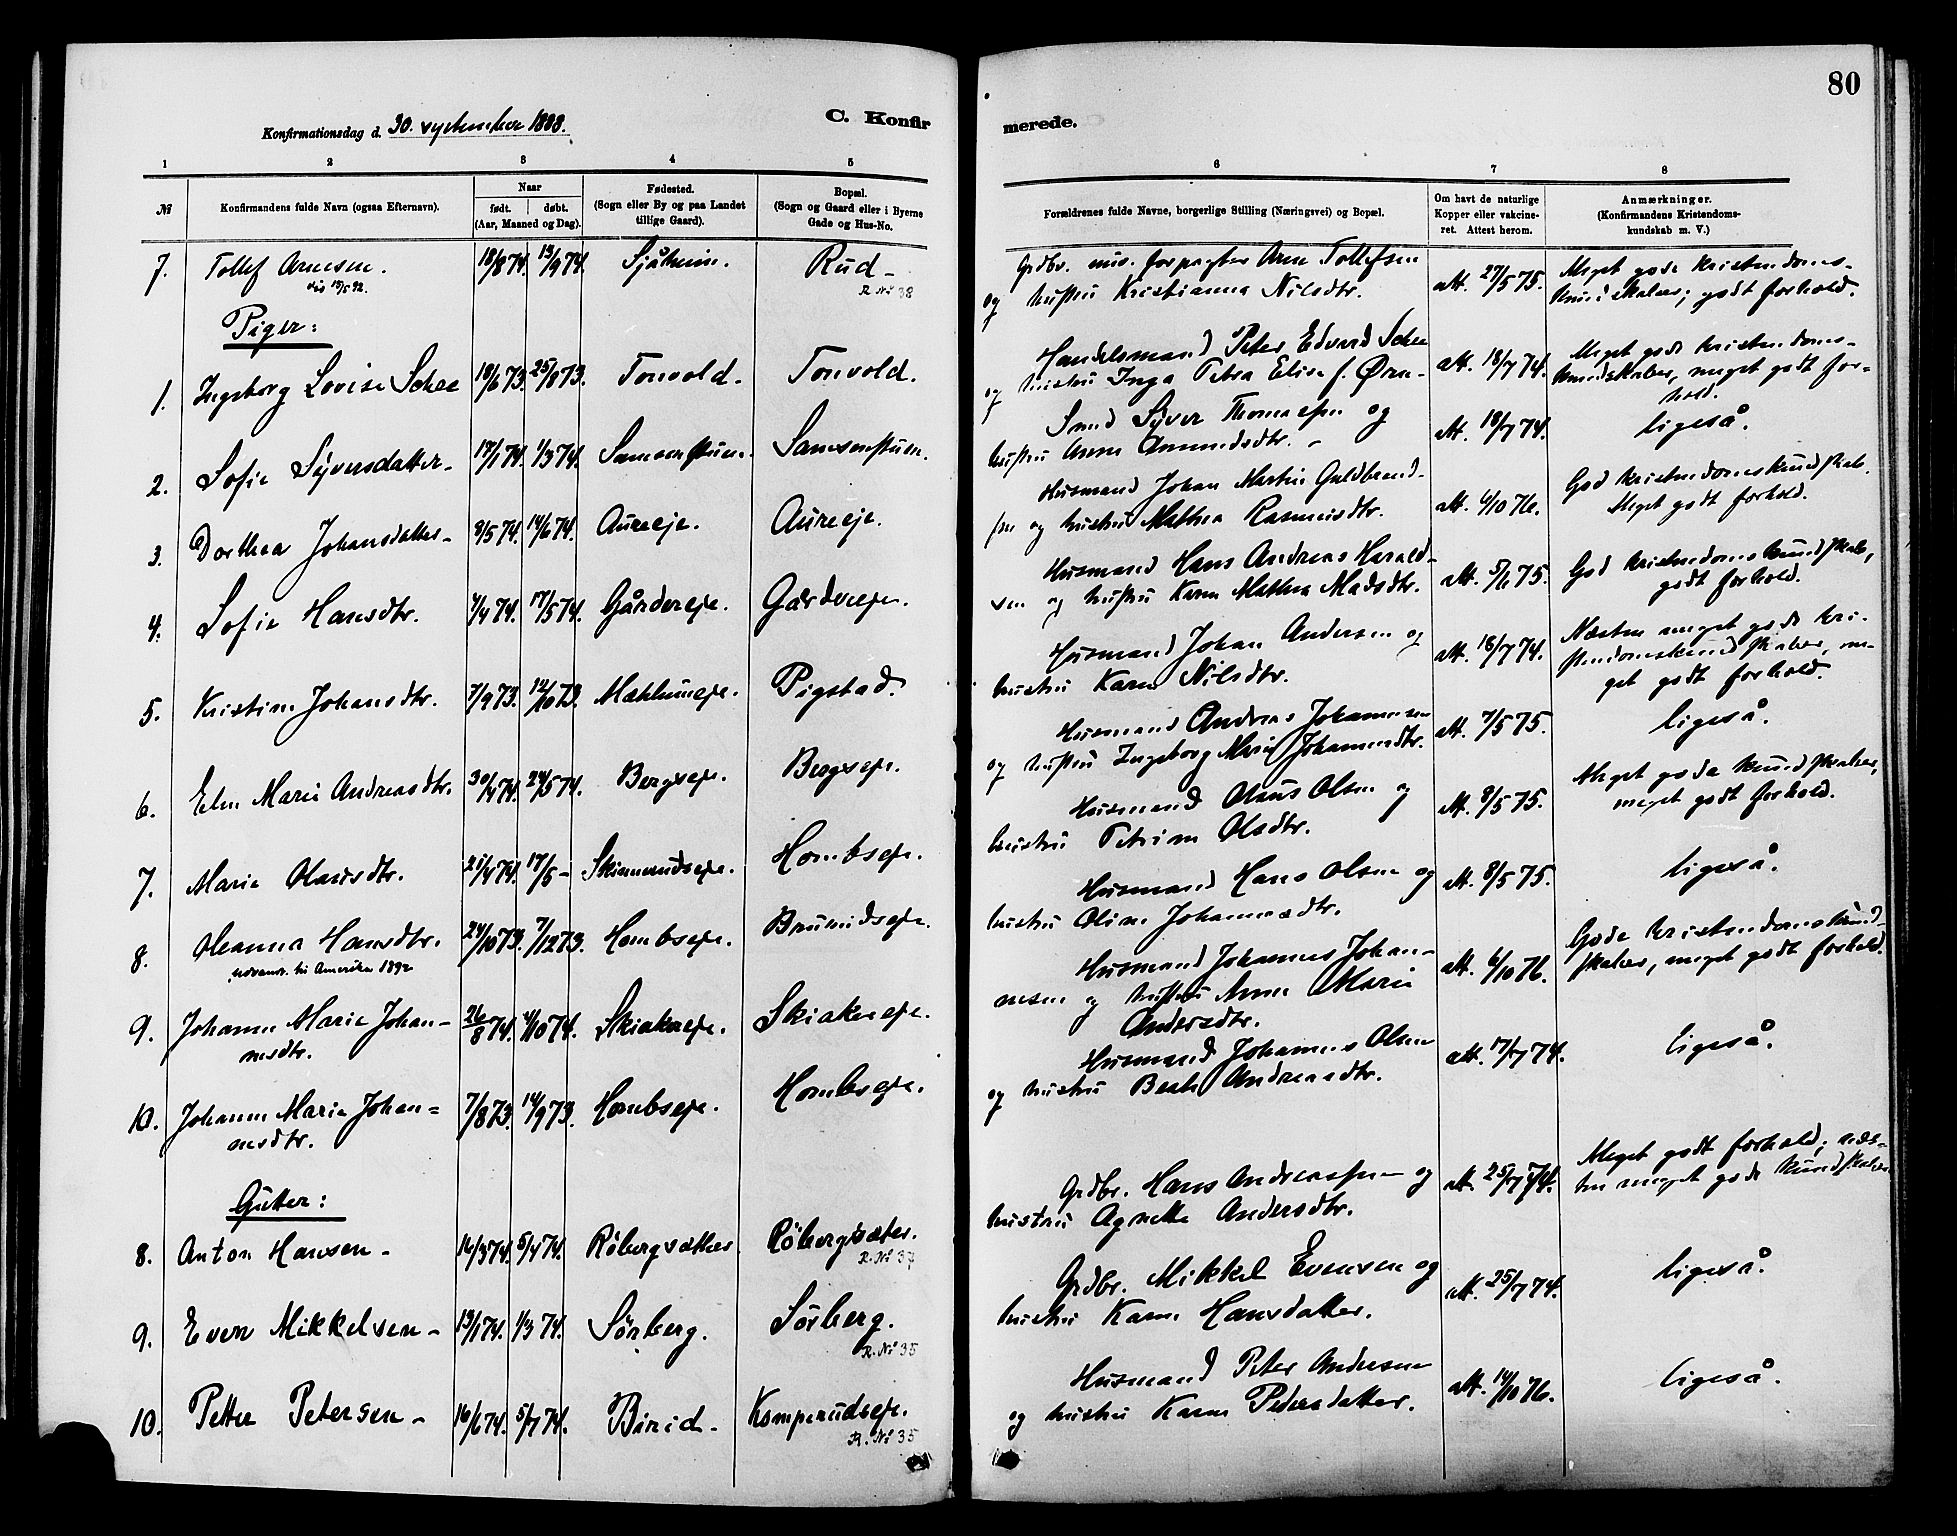 80
Konfirmationsdag d. 30. september 1888.
C. Konfirmerede.
1 2 3 4 5 6 7 8
№
Konfirmandens fulde Navn (ogsaa Efternavn).
Naar
født. døbt.
(Aar, Maaned og Dag).
Fødested.
(Sogn eller By og paa Landet
tillige Gaard).
Bopæl.
(Sogn og Gaard eller i Byerne
Gade og Hus-No.
Forældrenes fulde Navne, borgerlige Stilling (Næringsvei) og Bopæl.
Om havt de naturlige
Kopper eller vakcine-
ret. Attest herom.
Anmærkninger.
(Konfirmandens Kristendoms-
kundskab m. V.)
7. Tollef Arnesen. 18/8 74. 13/9 74. Sjåheim. Rud - Grdbr. forpagter Arne Tollefsen
R. № 38
og hustru Kristianna Nilsdtr. att. 27/5 75. Meget gode kristendoms-
kundskaber; godt forhold.
Piger:
1. Ingeborg Lovise Schee 18/6 73. 25/8 73. Tonvold. Tonvold. Handelsmand Peter Edvard Schee
og hustru Inga Petra Elise f. Ørn- att. 18/7 74. Meget gode kristendoms-
kundskaber, meget godt for-
hold.
2. Sofie Syversdatter - 17/1 74. 1/3 74. Samsonstuen. Samsonstuen. Smed Syver Thomasen og
hustru Anne Amundsdtr. - att. 18/7 74. ligeså.
3. Dorthea Johansdatter - 8/5 74. 14/6 74. Aureeje. Aureeje. Husmand Johan Martin Guldbrand-
sen og hustru Mathea Rasmusdtr. att. 6/10 76. God kristendomskundskab.
Meget godt forhold.
4. Sofie Hansdtr. 4/4 74. 17/5 74. Gårdereje. Gårdereje. Husmand Hans Andreas Harald-
sen og hustru Karen Mathea Madsdtr. att. 5/6 75. God kristendomskundskab,
godt forhold.
5. Kristine Johansdtr. 7/9 73. 12/10 73. Mæhlumeje. Pigstad. Husmand Johan Andersen og
hustru Karen Nilsdtr. att. 18/7 74. Næsten meget gode kri-
stendomskundskaber, me-
get godt forhold.
6. Elen Marie Andreasdtr. 30/4 74. 24/5 74. Bergseje. Bergseje. Husmand Andreas Johannesen
og hustru Ingeborg Marie Johannesdtr. att. 7/5 75. ligeså.
7. Marie Olausdtr. 21/4 74. 17/5 - Skiamundseje. Hombseje. Husmand Olaus Olsen og
hustru Petrine Olsdtr. att. 8/5 75. Meget gode kundskaber,
meget godt forhold.
8. Oleanna Hansdtr. 24/10 73. 7/12 73. Hombseje. Brumidseje. Husmand Hans Olsen og
udvandr. til Amerika 1892
hustru Oline Johannesdtr. att. 8/5 75. ligeså.
9. Johanne Marie Johan-
nesdtr. 26/8 74. 4/10 74. Skiakereje. Skiakereje. Husmand Johannes Johan-
nesen og hustru Anne Marie
Andersdtr. att. 6/10 76. Gode kristendomskund-
skaber, meget godt forhold.
10. Johanne Marie Johan-
nesdtr. 7/8 73. 14/9 73. Hombseje. Hombseje. Husmand Johannes Olsen
og hustru Beate Andreasdtr. att. 17/7 74. ligeså.
Gutter:
8. Anton Hansen - 16/3 74. 5/4 74. Röbergsæther Röbergsæter. Grdbr. Hans Andreassen og
R. № 37
hustru Agnette Andersdtr. att. 25/7 74. Meget godt forhold; næs-
ten meget gode kundskaber
9. Even Mikkelsen - 13/1 74. 1/3 74. Sörberg. Sörberg. Grdbr. Mikkel Evensen og
R. № 35
hustru Karen Hansdatter. att. 25/7 74. ligeså.
10. Petter Petersen - 16/6 74. 5/7 74. Birid - Komperudseje. Husmand Peter Andresen
R. № 35
og hustru Karen Pedersdatter. att. 14/10 76. ligeså.